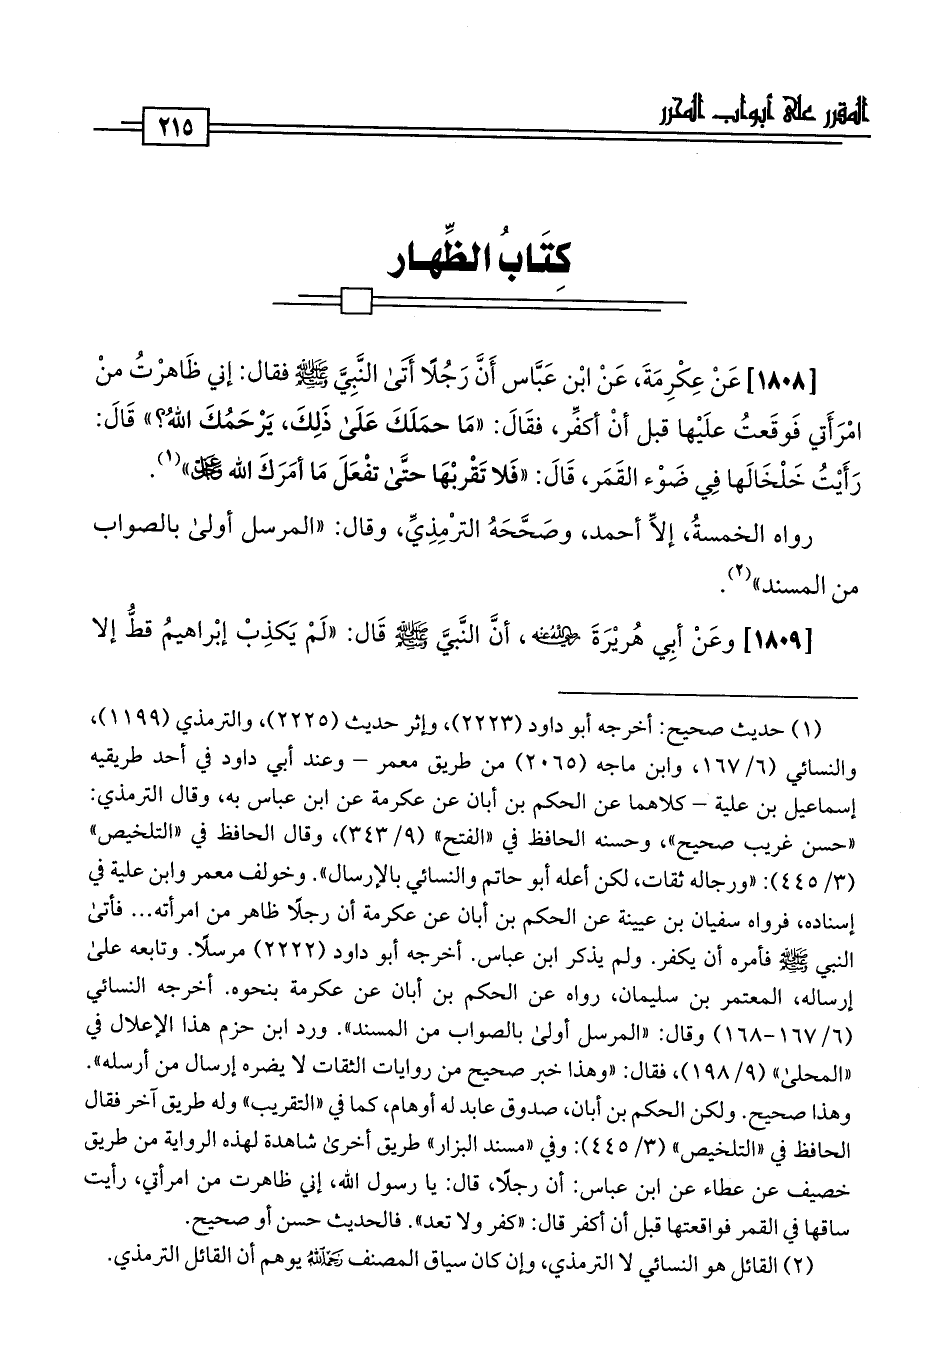 المقرر على أبواب المحرر
٢١٥
كِتَابُ الظِّهار
[١٨٠٨] عَنْ عِكْرِمَةَ، عَنْ ابْنِ عَبَّاسٍ أَنَّ رَجُلًا أَتَىٰ النَّبِيَّ ﷺ فقال: إني ظَاهرْتُ منْ
امْرَأتي فَوقَعتُ علَيْها قبل أنْ أكفِّر، فقَالَ: «مَا حمَلَكَ عَلَىٰ ذَلِكَ، يَرْحَمُكَ اللهُ؟» قَالَ:
رَأَيْتُ خَلْخَالَها فِي ضَوْءِ القَمَر، قَالَ: «فَلا تَقْربْهَا حتَّىٰ تفْعَلَ مَا أمَرَكَ الله ﷿»(١).
رواه الخمسةُ، إلاَّ أحمد، وصَحَّحَهُ الترْمِذِيِّ، وقال: «المرسل أولىٰ بالصواب
من المسند»(٢).
[١٨٠٩] وعَنْ أبِي هُرَيْرَةَ رضي الله عنه، أنَّ النَّبيَّ ﷺ قَال: «لَمْ يَكذِبْ إبْراهيمُ قطُّ إلا
(١) حديث صحيح: أخرجه أبو داود (٢٢٢٣)، وإثر حديث (٢٢٢٥)، والترمذي (١١٩٩)،
والنسائي (٦/ ١٦٧، وابن ماجه (٢٠٦٥) من طريق معمر – وعند أبي داود في أحد طريقيه
إسماعيل بن علية – كلاهما عن الحكم بن أبان عن عكرمة عن ابن عباس به، وقال الترمذي:
«حسن غريب صحيح»، وحسنه الحافظ في «الفتح» (٩/ ٣٤٣)، وقال الحافظ في «التلخيص»
(٣/ ٤٤٥): «ورجاله ثقات، لكن أعله أبو حاتم والنسائي بالإرسال». وخولف معمر وابن علية في
إسناده، فرواه سفيان بن عيينة عن الحكم بن أبان عن عكرمة أن رجلًا ظاهر من امرأته... فأتىٰ
النبي ﷺ فأمره أن يكفر. ولم يذكر ابن عباس. أخرجه أبو داود (٢٢٢٢) مرسلًا. وتابعه علىٰ
إرساله، المعتمر بن سليمان، رواه عن الحكم بن أبان عن عكرمة بنحوه. أخرجه النسائي
(٦/ ١٦٧-١٦٨) وقال: «المرسل أولىٰ بالصواب من المسند». ورد ابن حزم هذا الإعلال في
«المحلىٰ» (٩/ ١٩٨)، فقال: «وهذا خبر صحيح من روايات الثقات لا يضره إرسال من أرسله».
وهذا صحيح. ولكن الحكم بن أبان، صدوق عابد له أوهام، كما في «التقريب» وله طريق آخر فقال
الحافظ في «التلخيص» (٣/ ٤٤٥): وفي «مسند البزار» طريق أخرىٰ شاهدة لهذه الرواية من طريق
خصيف عن عطاء عن ابن عباس: أن رجلًا، قال: يا رسول الله، إني ظاهرت من امرأتي، رأيت
ساقها في القمر فواقعتها قبل أن أكفر قال: «كفر ولا تعد». فالحديث حسن أو صحيح.
(٢) القائل هو النسائي لا الترمذي، وإن كان سياق المصنف رحمه الله يوهم أن القائل الترمذي.